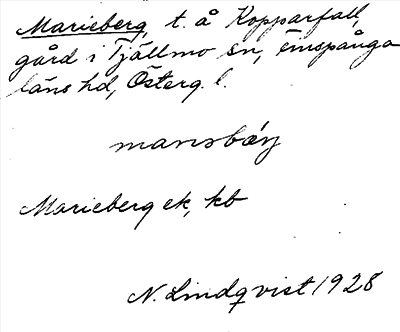 Marieberg, t. å Kopparfall,
gård i Tjällmo sn, Finspånga
läns hd, Österg. l.
marısbæ̀rj
Marieberg ek, kb
N. Lindqvist 1928